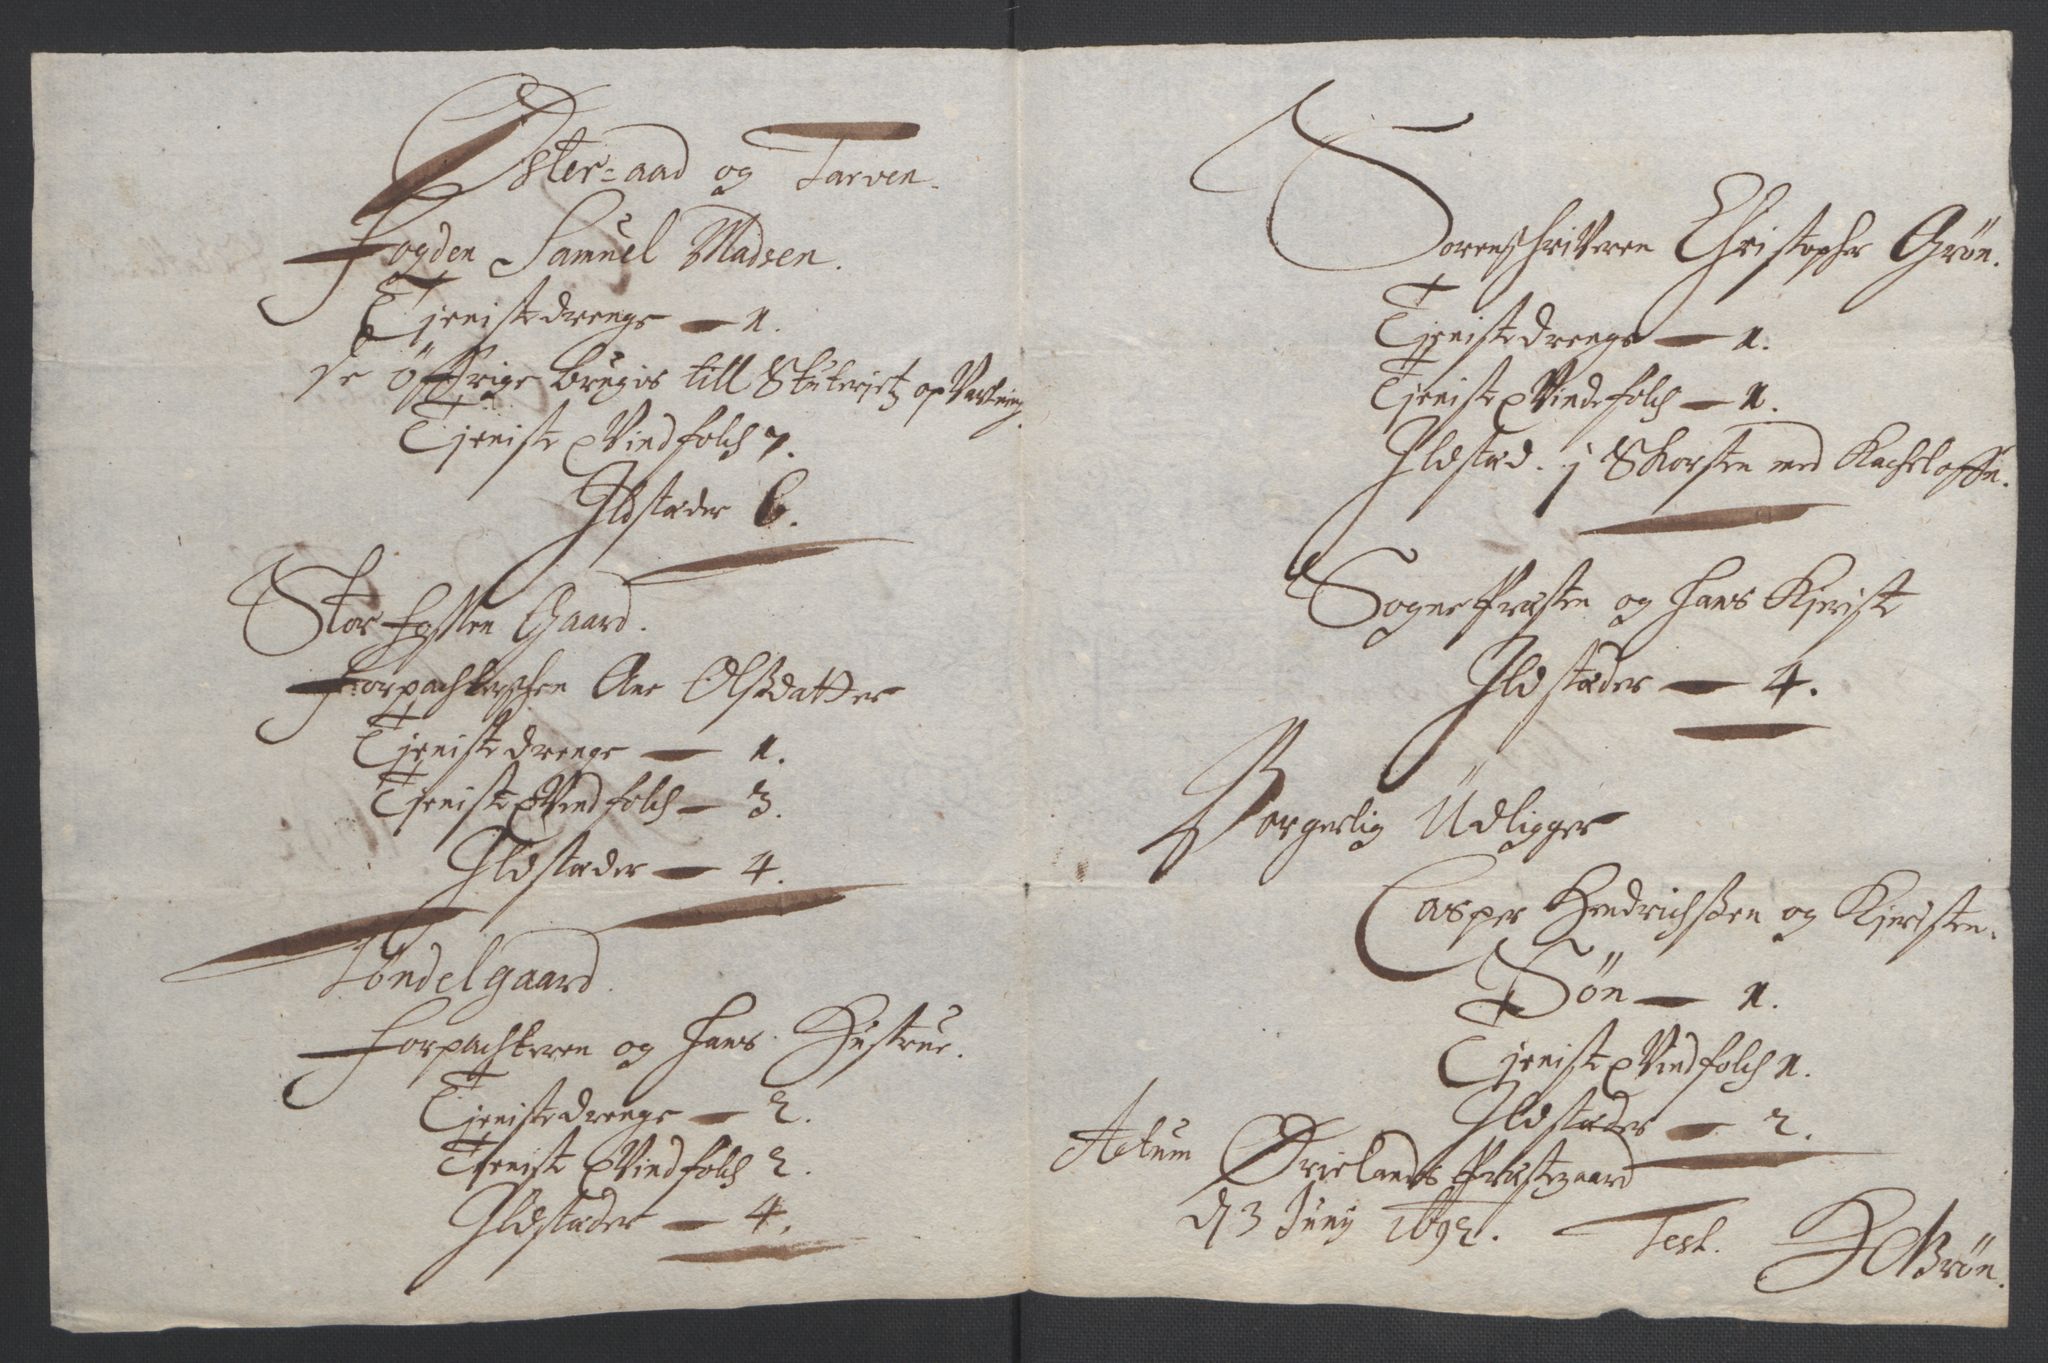 Øster=aad og Tarven.
Fogden Samuel Madsen.
Tjenistedrenge — 1.
de öffrige brugis till Stuteriet opvartning.
Tieniste Qvindfolch 7.
Ildstæder 6.
Stor fosen Gaard.
Forpachterschen Ane Olßdatter
Tjenistedrenge — 1.
Tieniste Qvindfolch — 3.
Ildstæder — 4.
Töndelgaard.
Forpachteren og hans Hustrue.
Tjenistedrenge — 2.
Tieniste Qvindfolch 2.
Ildstæder — 4.
Sorenschriveren Christopher Grön.
Tjenistedrenge — 1.
Tjeniste Qvindefolch — 1.
Ildstæd. j Skorsten med Kacheloffn.
Sogne Præsten og hans Kjeriste
Ildstæder — 4.
Borgerlig Udligger
Casper Hendrichßen og Kjeristen.
Sön — 1.
Tjeniste Qvindfolch 1.
Ildstæder — 2.
Actum Ørelands Præstegaard
d 3 Junij 1692. Test. Grön.